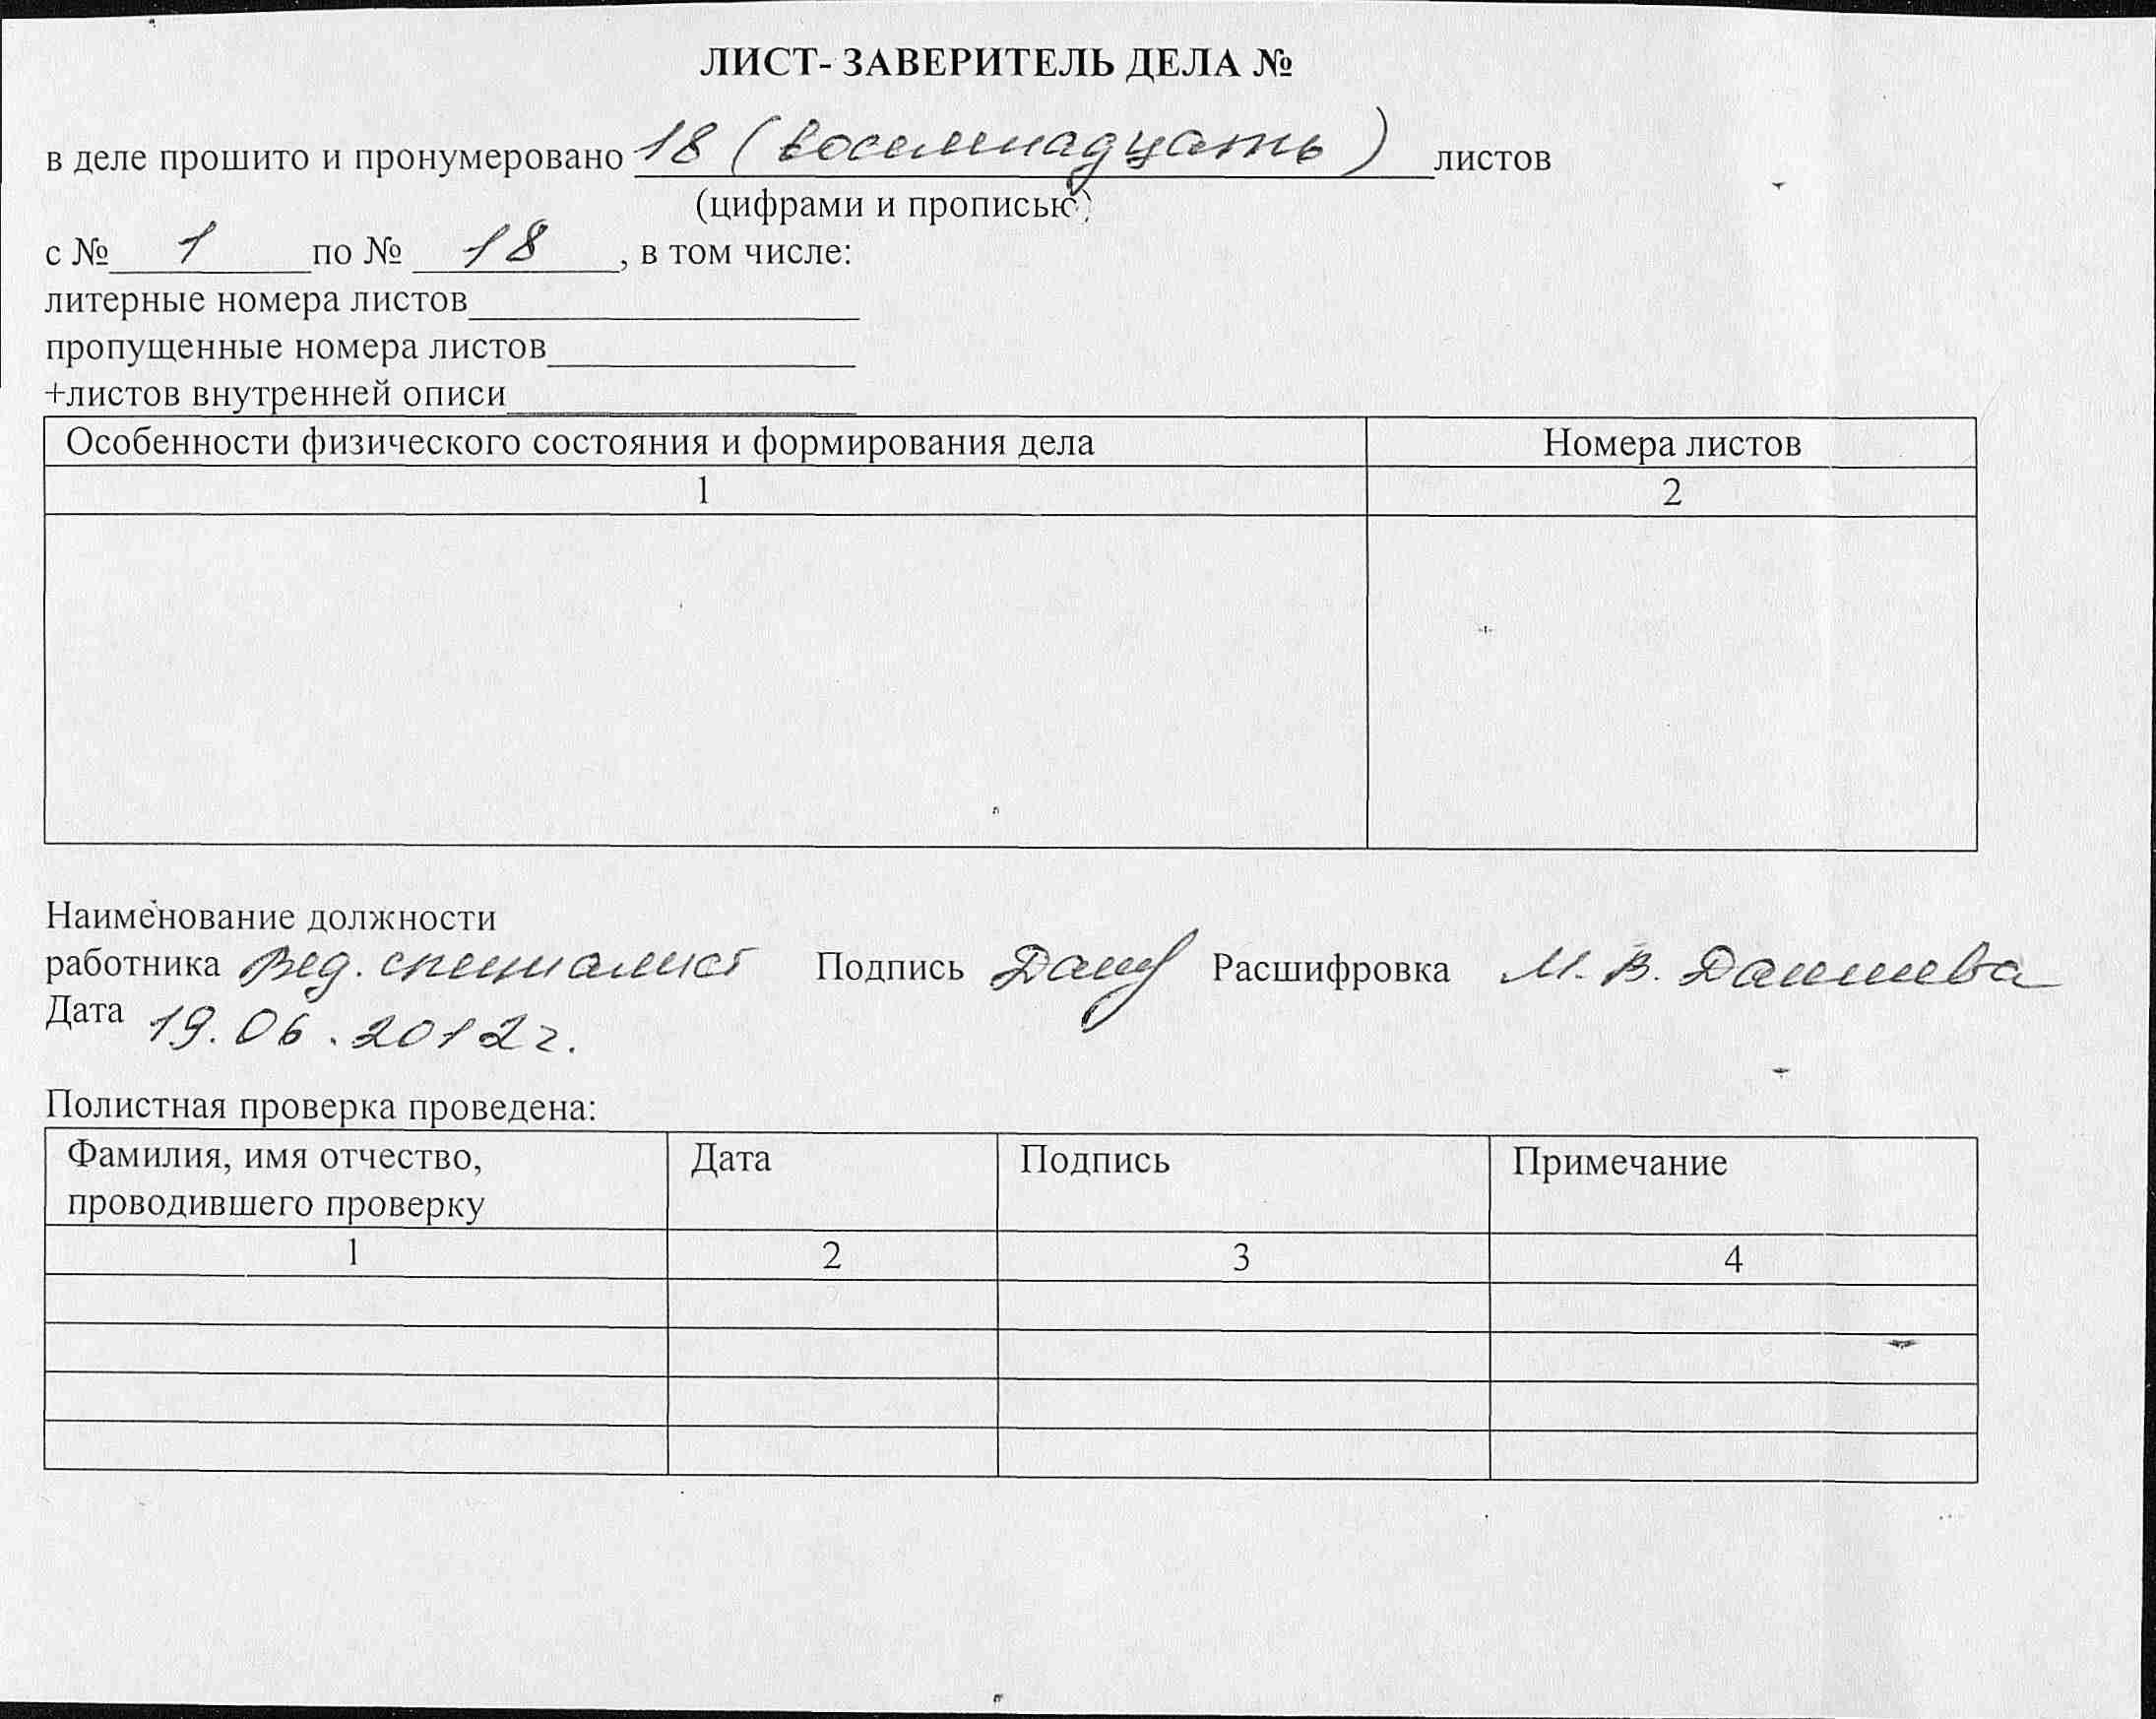 ЛИСТ- ЗАВЕРИТЕЛЬ ДЕЛА №
в деле прошито и пронумеровано 18 (восемнадцать) листов
(цифрами и прописью)
с № 1 по № 18, в том числе:
литерные номера листов
пропущенные номера листов
+листов внутренней описи
Особенности физического состояния и формирования дела Номера листов
1 2
Наименование должности
работника Вед. специалист Подпись Расшифровка М. В.
Дата 19.06.2012 г.
Полистная проверка проведена:
Фамилия, имя отчество, Дата Подпись Примечание
проводившего проверку
1 2 3 4